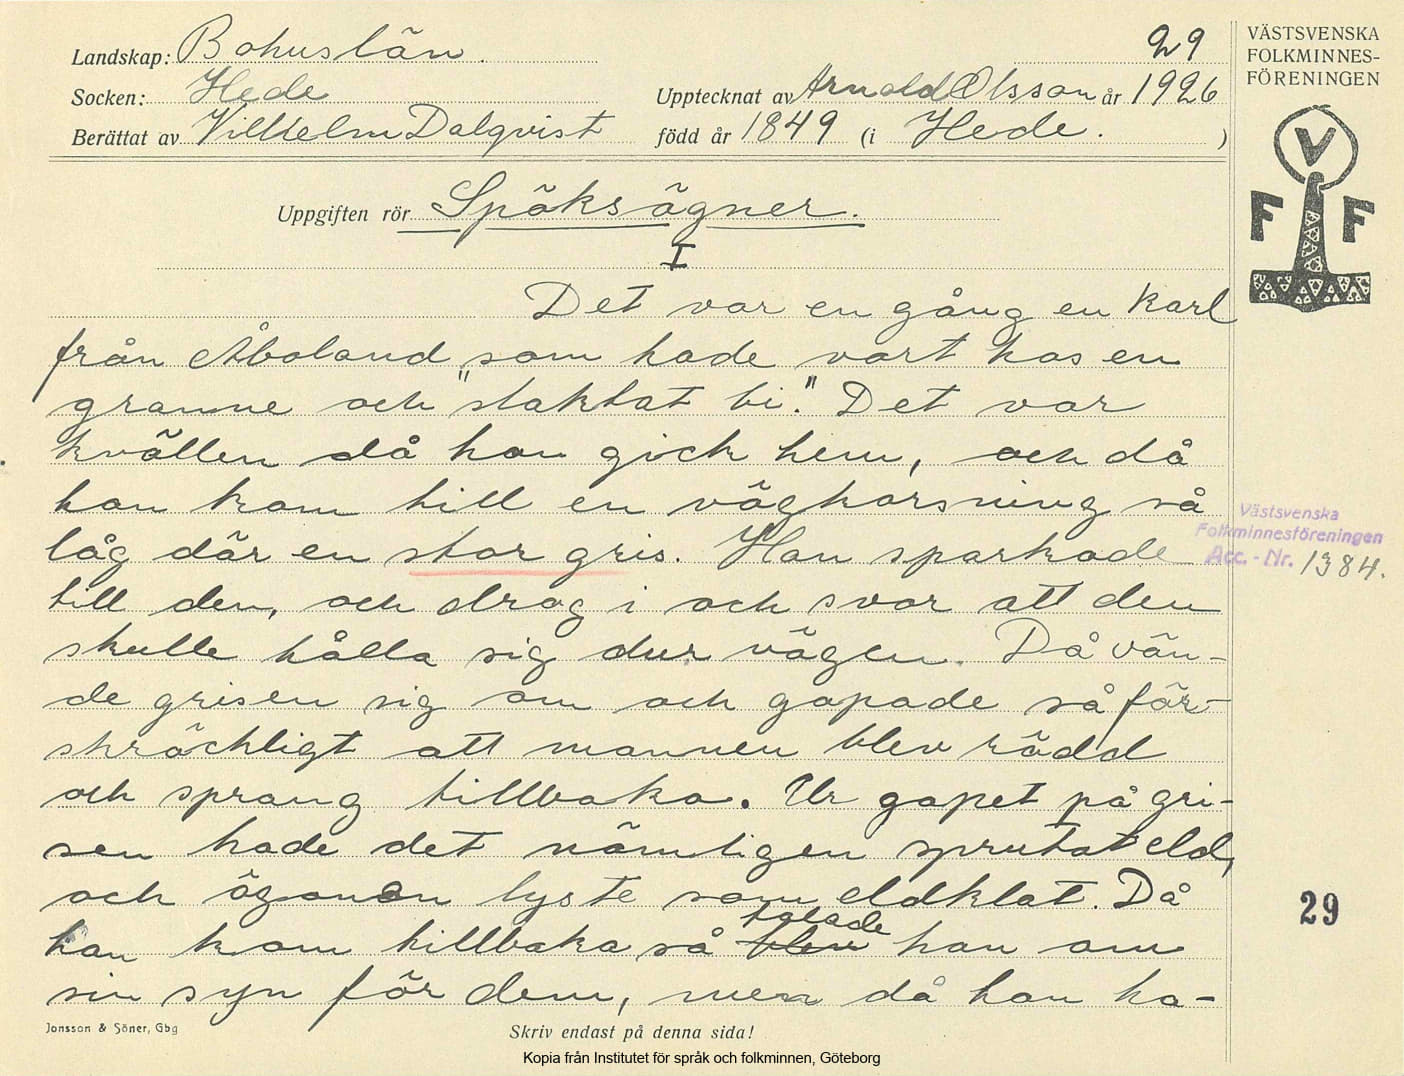 Landskap: Bohuslän. 29
Socken: Hede Upptecknat av Arnold Olsson år 1926
Berättat av Vilhelm Dalqvist född år 1849 (i Hede. )
Uppgiften rör Spöksägner.
I
Det var en gång en karl
från Åboland, som hade vart hos en
granne och "slaktat bi". Det var
kvällen då han gick hem, och då
han kom till en vägkorsning så
låg där en stor gris. Han sparkade
till den, och drog i och svor att den
skulle hålla sig dur vägen. Då vän-
de grisen sig om och gapade så för-
skräckligt att mannen blev rädd
och sprang tillbaka. Ur gapet på gri-
sen hade det nämligen sprutat eld,
och ögonen lyste som eldklot. Då
han kom tillbaka så blev talade han om
sin syn för dem, men då han ha-
Jonsson & Söner, Gbg
Skriv endast på denna sida!
Kopia från Institutet för språk och folkminnen, Göteborg
VÄSTSVENSKA
FOLKMINNES-
FÖRENINGEN
V
F F
Västsvenska
Folkminnesföreningen
Acc. - Nr. 1384.
29